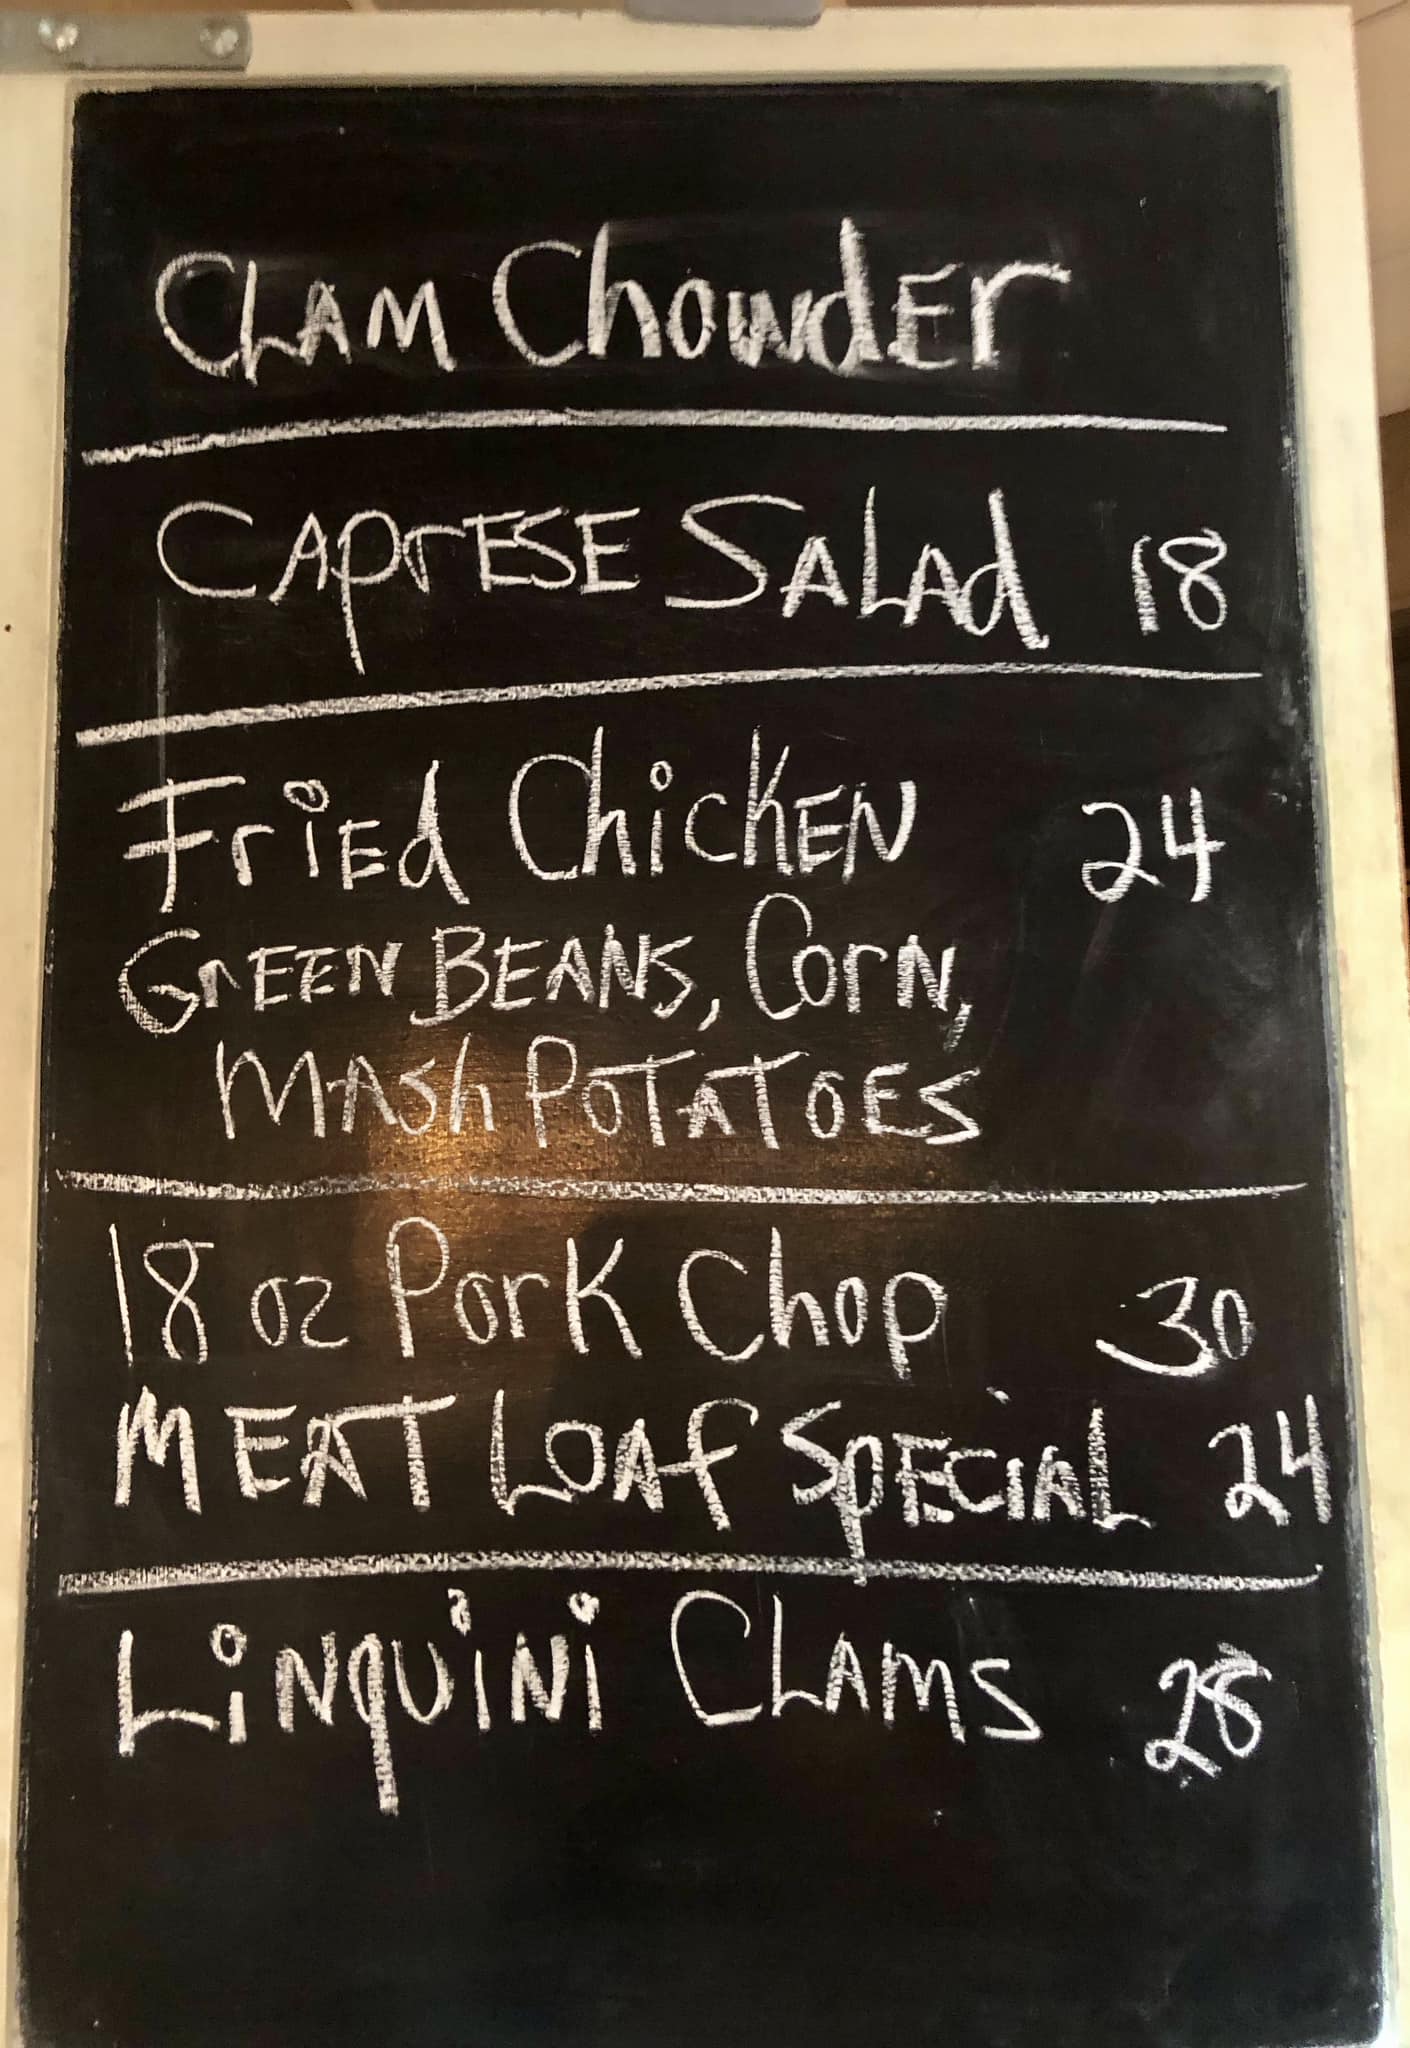 CLAM ChowdEr
CAprESE SALAd 18
FriEd ChicKEN 24
GrEEN BEANS, CorN,
MASh POTATOES
18 oz PorK Chop 30
MEAT LOAf SpECiAL 24
LiNquiNi CLAMS 28